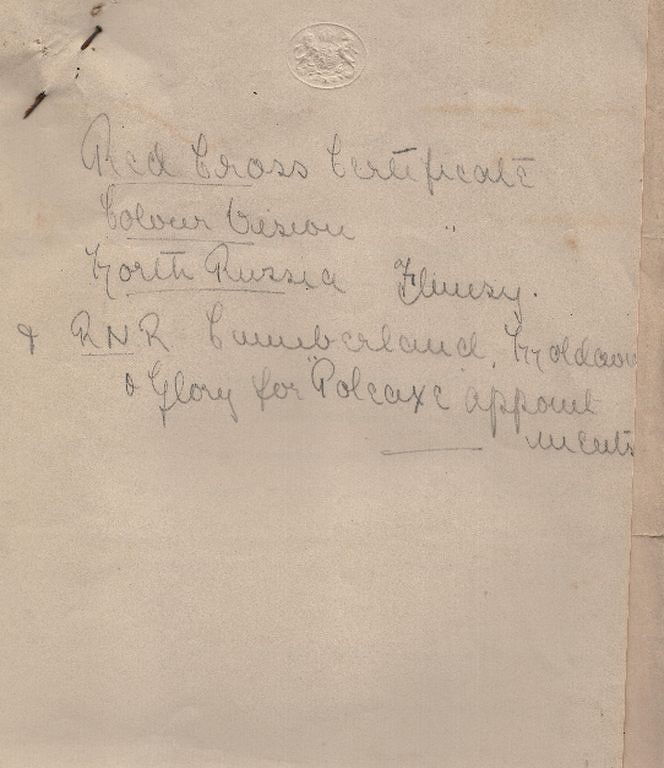 Red Cross Certificate
Colour Vision "
North Russia Flimsy.
& RNR Cumberland, Moldavia
& Glory for "Poleaxe" appoint
ments